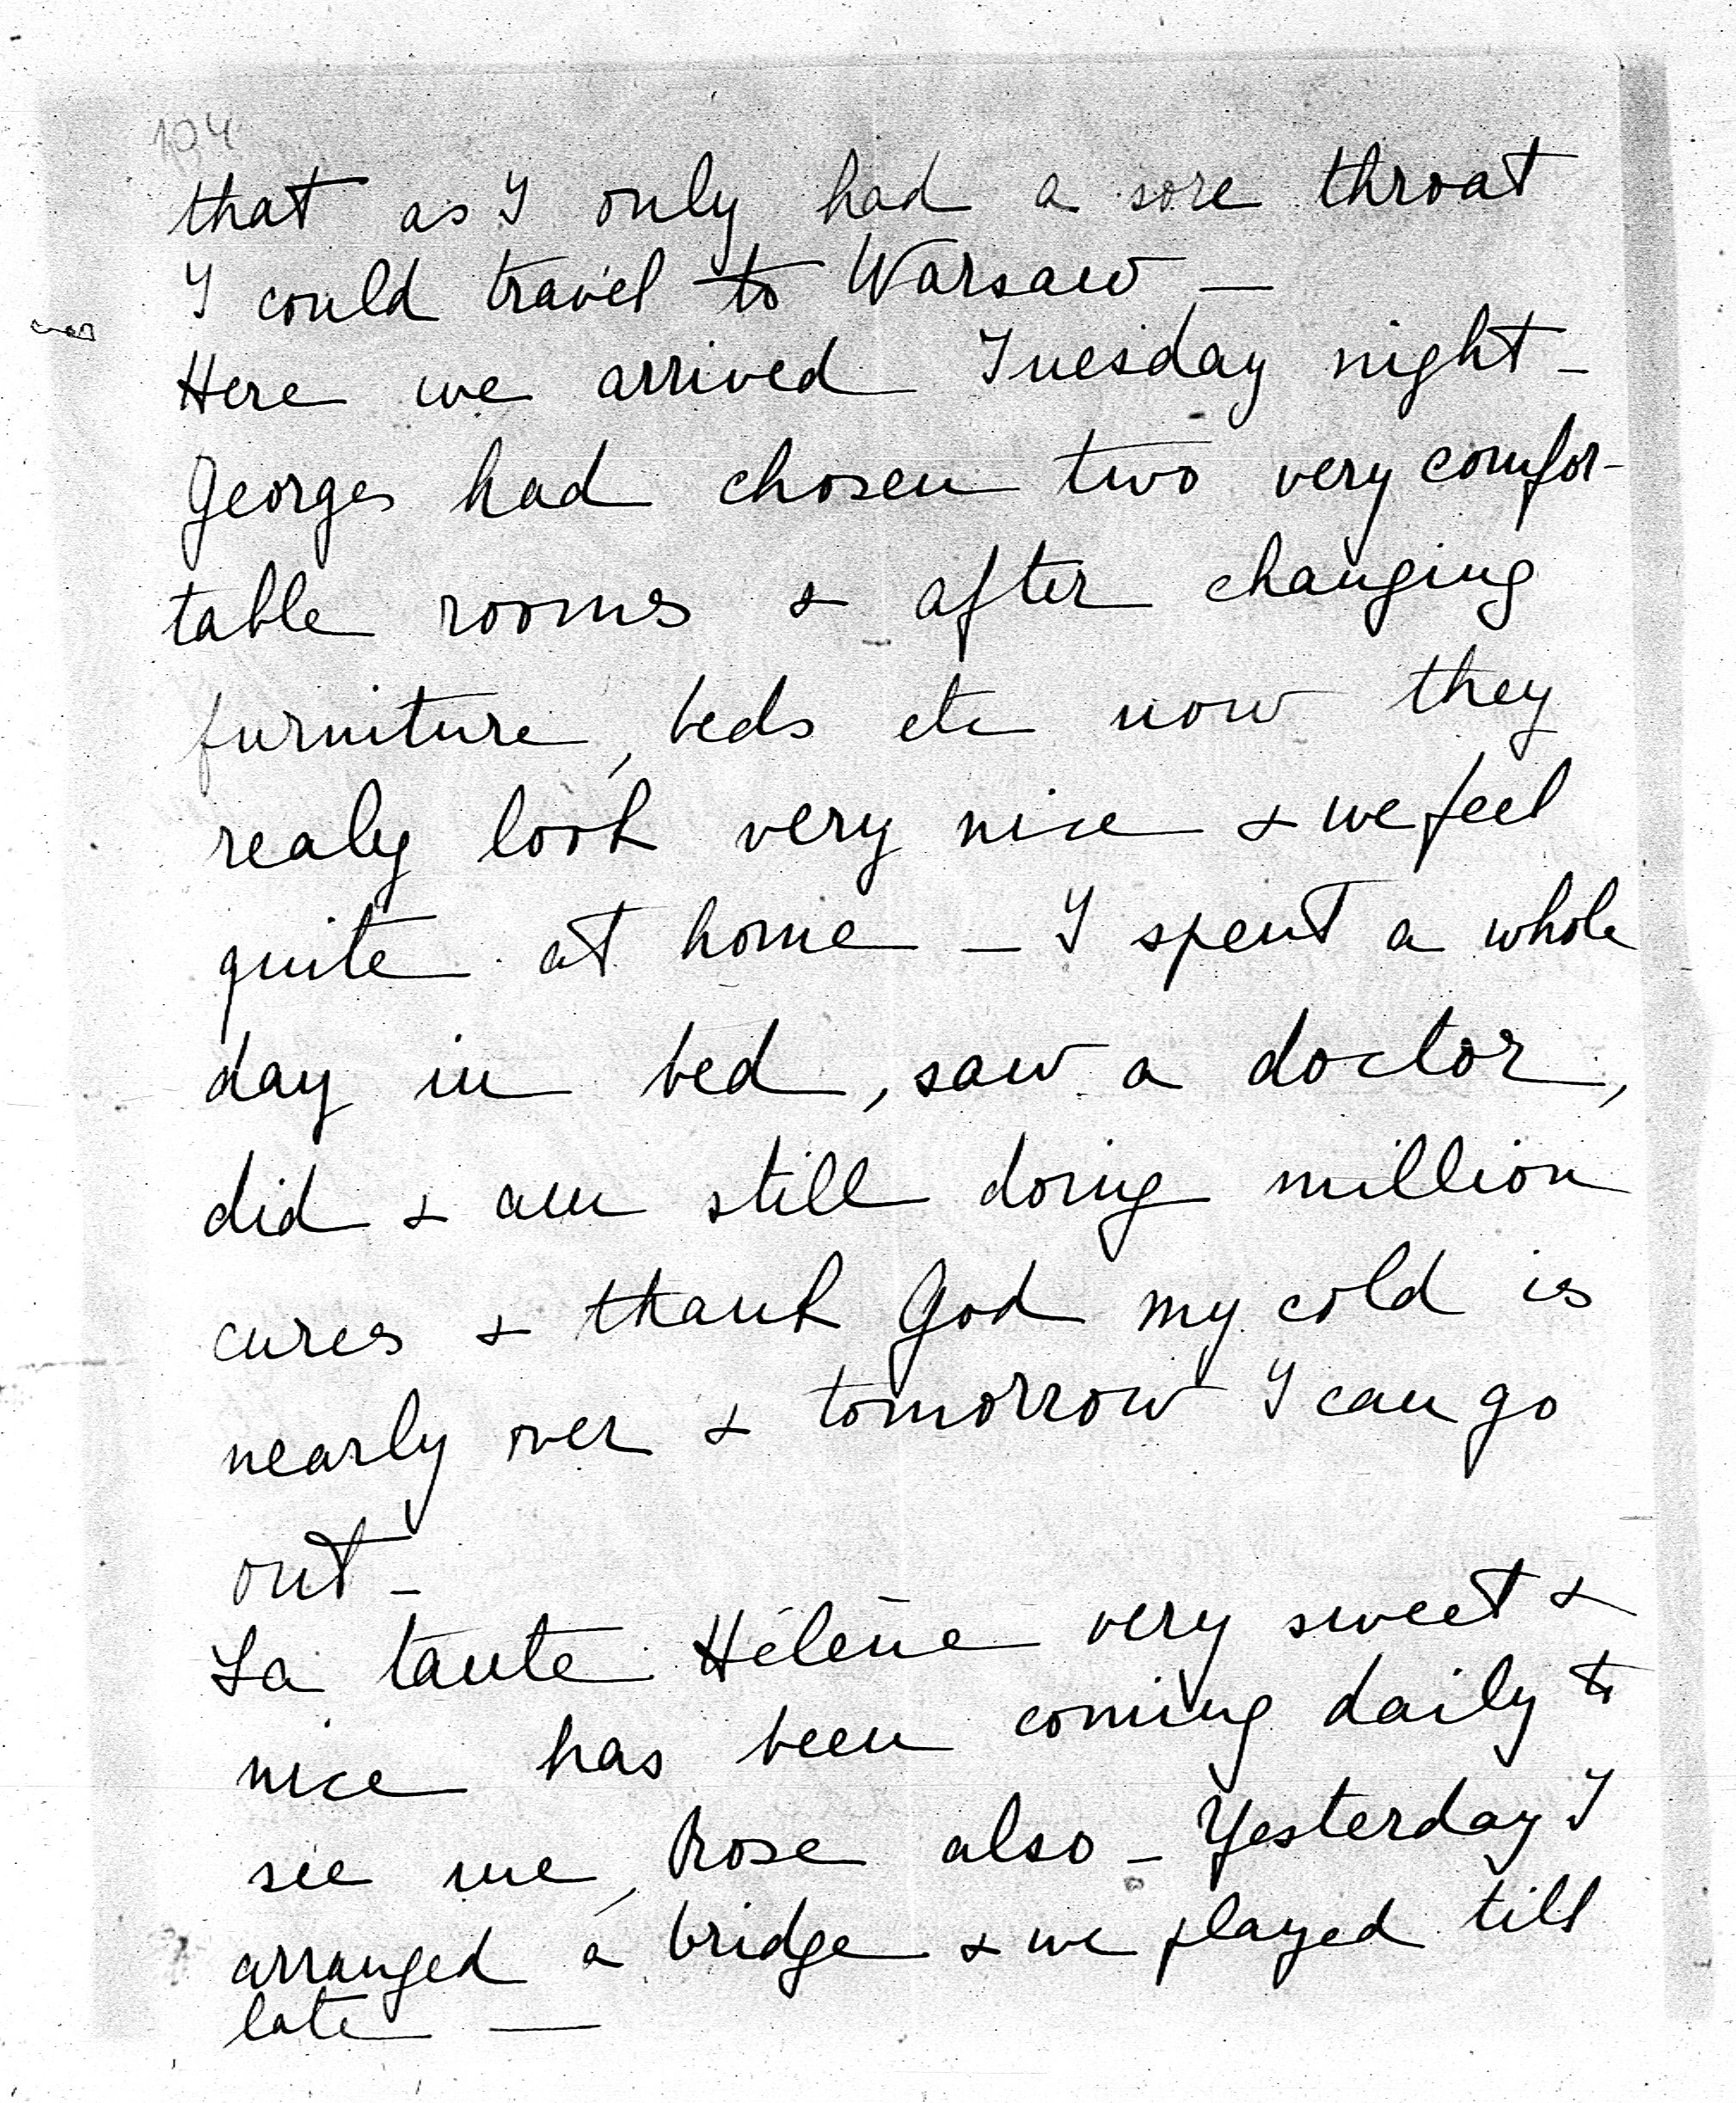 104
that as I only had a sore throat
I could travel to Warsaw —
Here we arrived Tuesday night –
Georges had chosen two very comfor-
table rooms & after changing
furniture, beds etc now they
realy look very nice & we feel
quite at home – I spent a whole
day in bed, saw a doctor,
did & am still doing million
cures & thank God my cold is
nearly over & tomorrow I can go
out –
La tante Hélène very sweet &
nice has been coming daily to
see me, Rose also – Yesterday I
arranged a bridge & we played till
late —